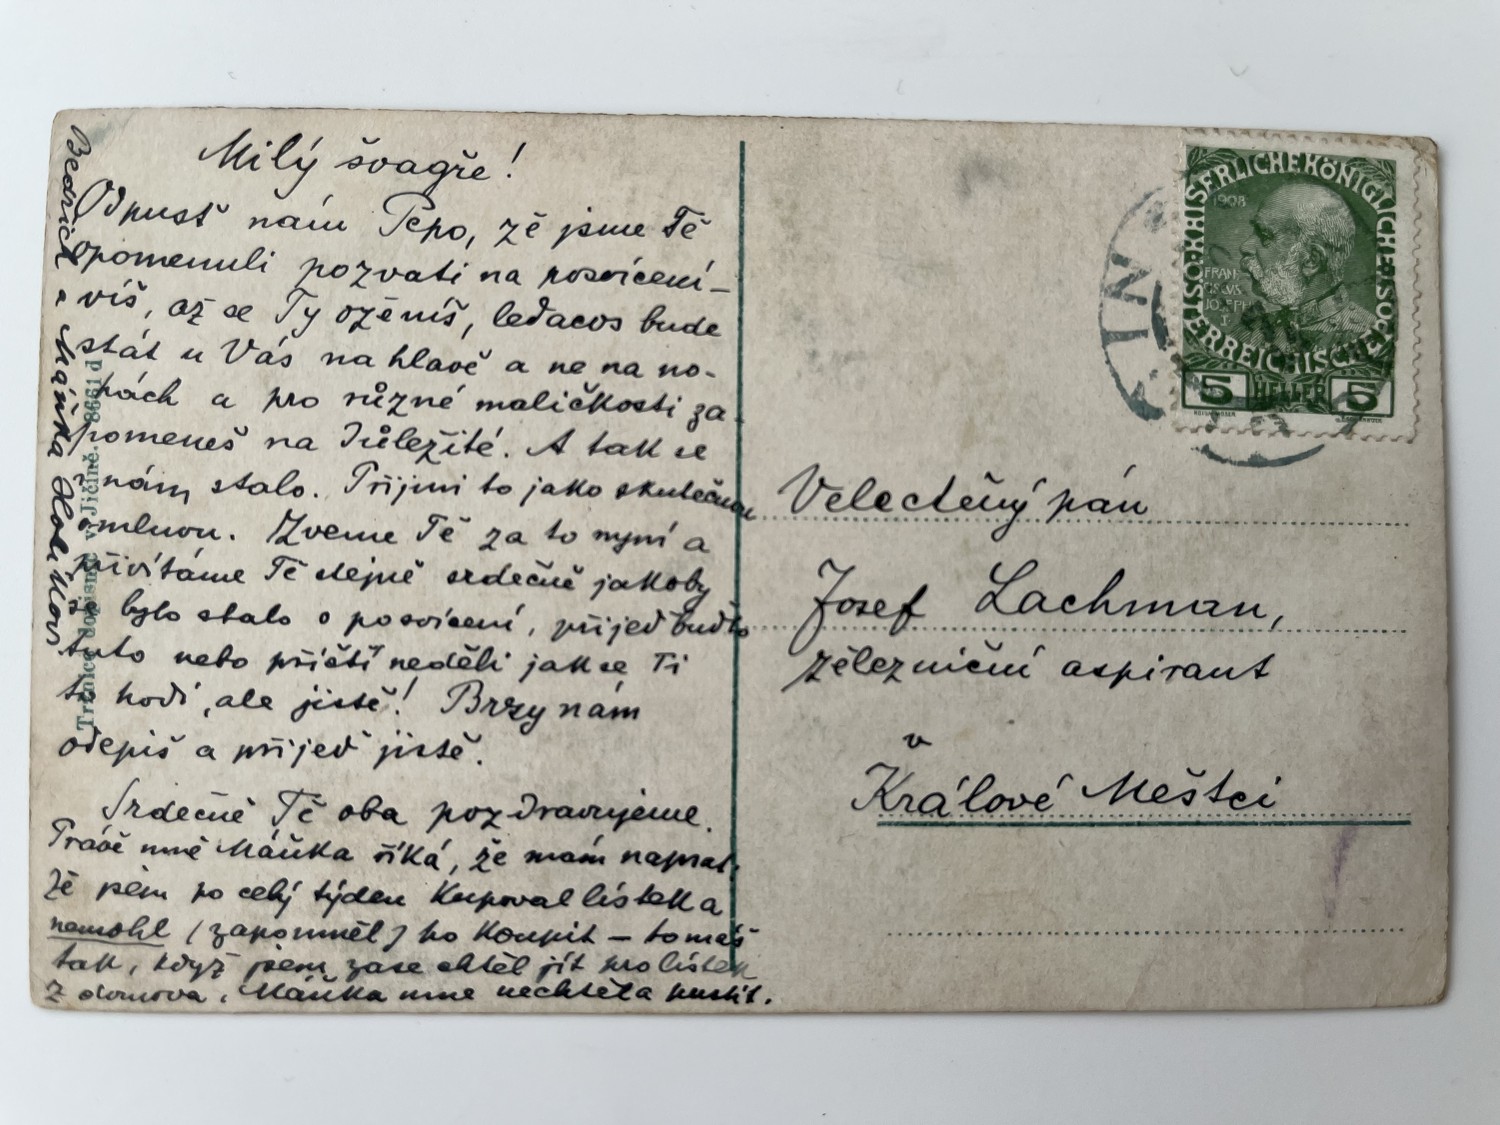 Milý švagře!
Odpusť nám Pepo, žě jsme Tě
opomenuli pozvati na posvícení –
víš, až se Ty ožěníš, leďacos bude
stát u Vás na hlavě a ne na no-
hách a pro různé maličkosti za-
pomeneš na důležité. A tak se
i nám stalo. Přijmi to jako skutečnou
omluvu. Zveme Tě za to nyní a
přivítáme Tě stejně srdečně jakoby
se bylo stalo o posvícení, přijeď buďto
tuto nebo příští neděli jak se Ti
to hodí, ale jistě! Brzy nám
odepiš a přijeď jistě.
Srdečně Tě oba pozdravujeme.
Právě mně Máňka říká, že mám napsat,
žě jsem po celý týden kupoval lístek a
nemohl (zapomněl) ho koupit – to máš
tak, když jsem zase chtěl jít pro lístek
z domova, Máňka mne nechtěla pustit.
Bedřich a Máňka
Tržnice dopisnic v Jičíně. 8661 d
KAISERLICHE KÖNIGLICHE
ÖSTERREICHISCHE
1908
FRAN-
CISCVS
JOSEPH
I.
5 HELLER 5
Velectěný pán
Josef Lachman,
žělezniční aspirant
v
Králové Městci